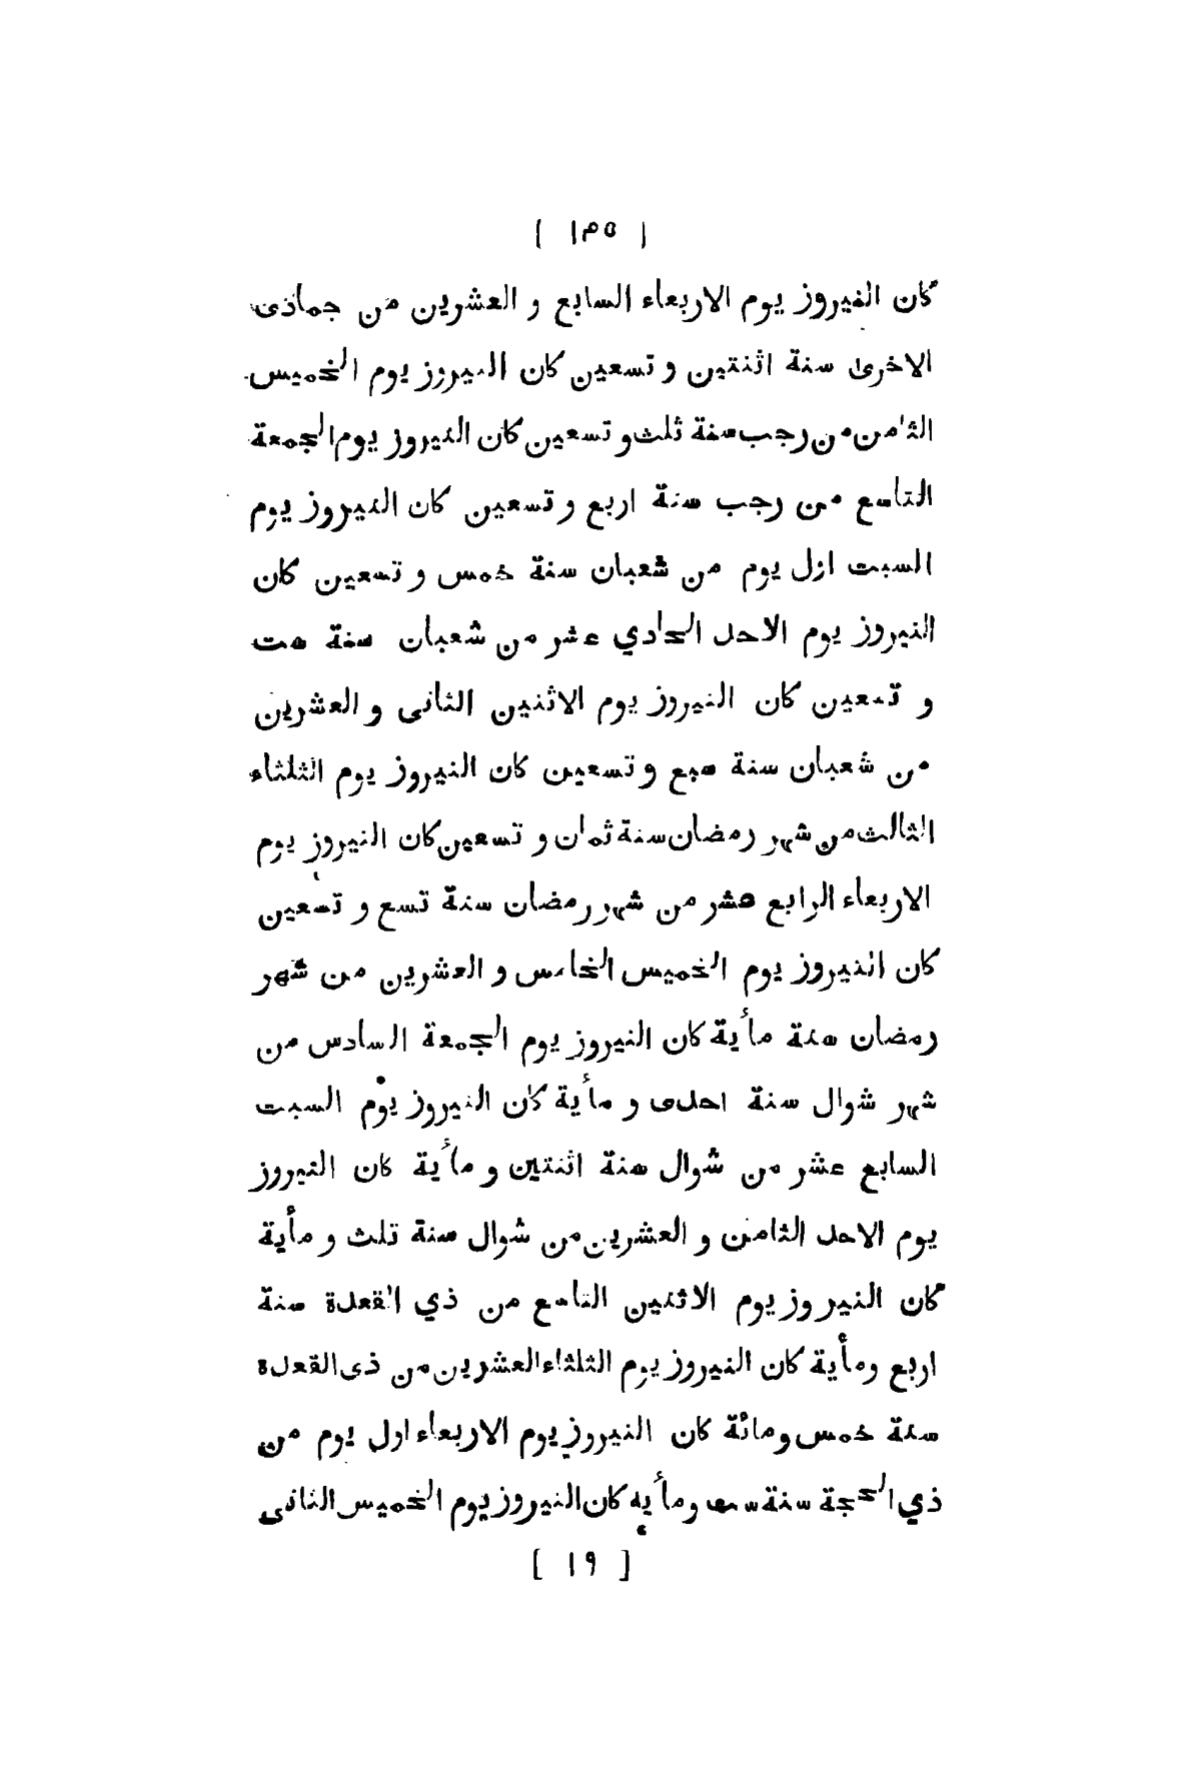 [ ١٤٥ ]
كان النيروز يوم الاربعاء السابع و العشرين من جمادى
الاخرى سنة اثنتين و تسعين كان النيروز يوم الخميس
الثامن من رجب سنة ثلث و تسعين كان النيروز يوم الجمعة
التاسع من رجب سنة اربع و تسعين كان النيروز يوم
السبت اول يوم من شعبان سنة خمس و تسعين كان
النيروز يوم الاحد الحادي عشر من شعبان سنة ست
و تسعين كان النيروز يوم الاثنين الثانى و العشرين
من شعبان سنة سبع و تسعين كان النيروز يوم الثلثاء
الثالث من شهر رمضان سنة ثمان و تسعين كان النيروز يوم
الاربعاء الرابع عشر من شهر رمضان سنة تسع و تسعين
كان النيروز يوم الخميس الخامس و العشرين من شهر
رمضان سنة مأية كان النيروز يوم الجمعة السادس من
شهر شوال سنة احدى و مأية كان النيروز يوم السبت
السابع عشر من شوال سنة اثنتين و مأية كان النيروز
يوم الاحد الثامن و العشرين من شوال سنة ثلث و مأية
كان النيروز يوم الاثنين التاسع من ذي القعدة سنة
اربع ومأية كان النيروز يوم الثلثاء العشرين من ذى القعدة
سنة خمس ومائة كان النيروز يوم الاربعاء اول يوم من
ذي الحجة سنة ست ومأية كان النيروز يوم الخميس الثانى
[ ١٩ ]